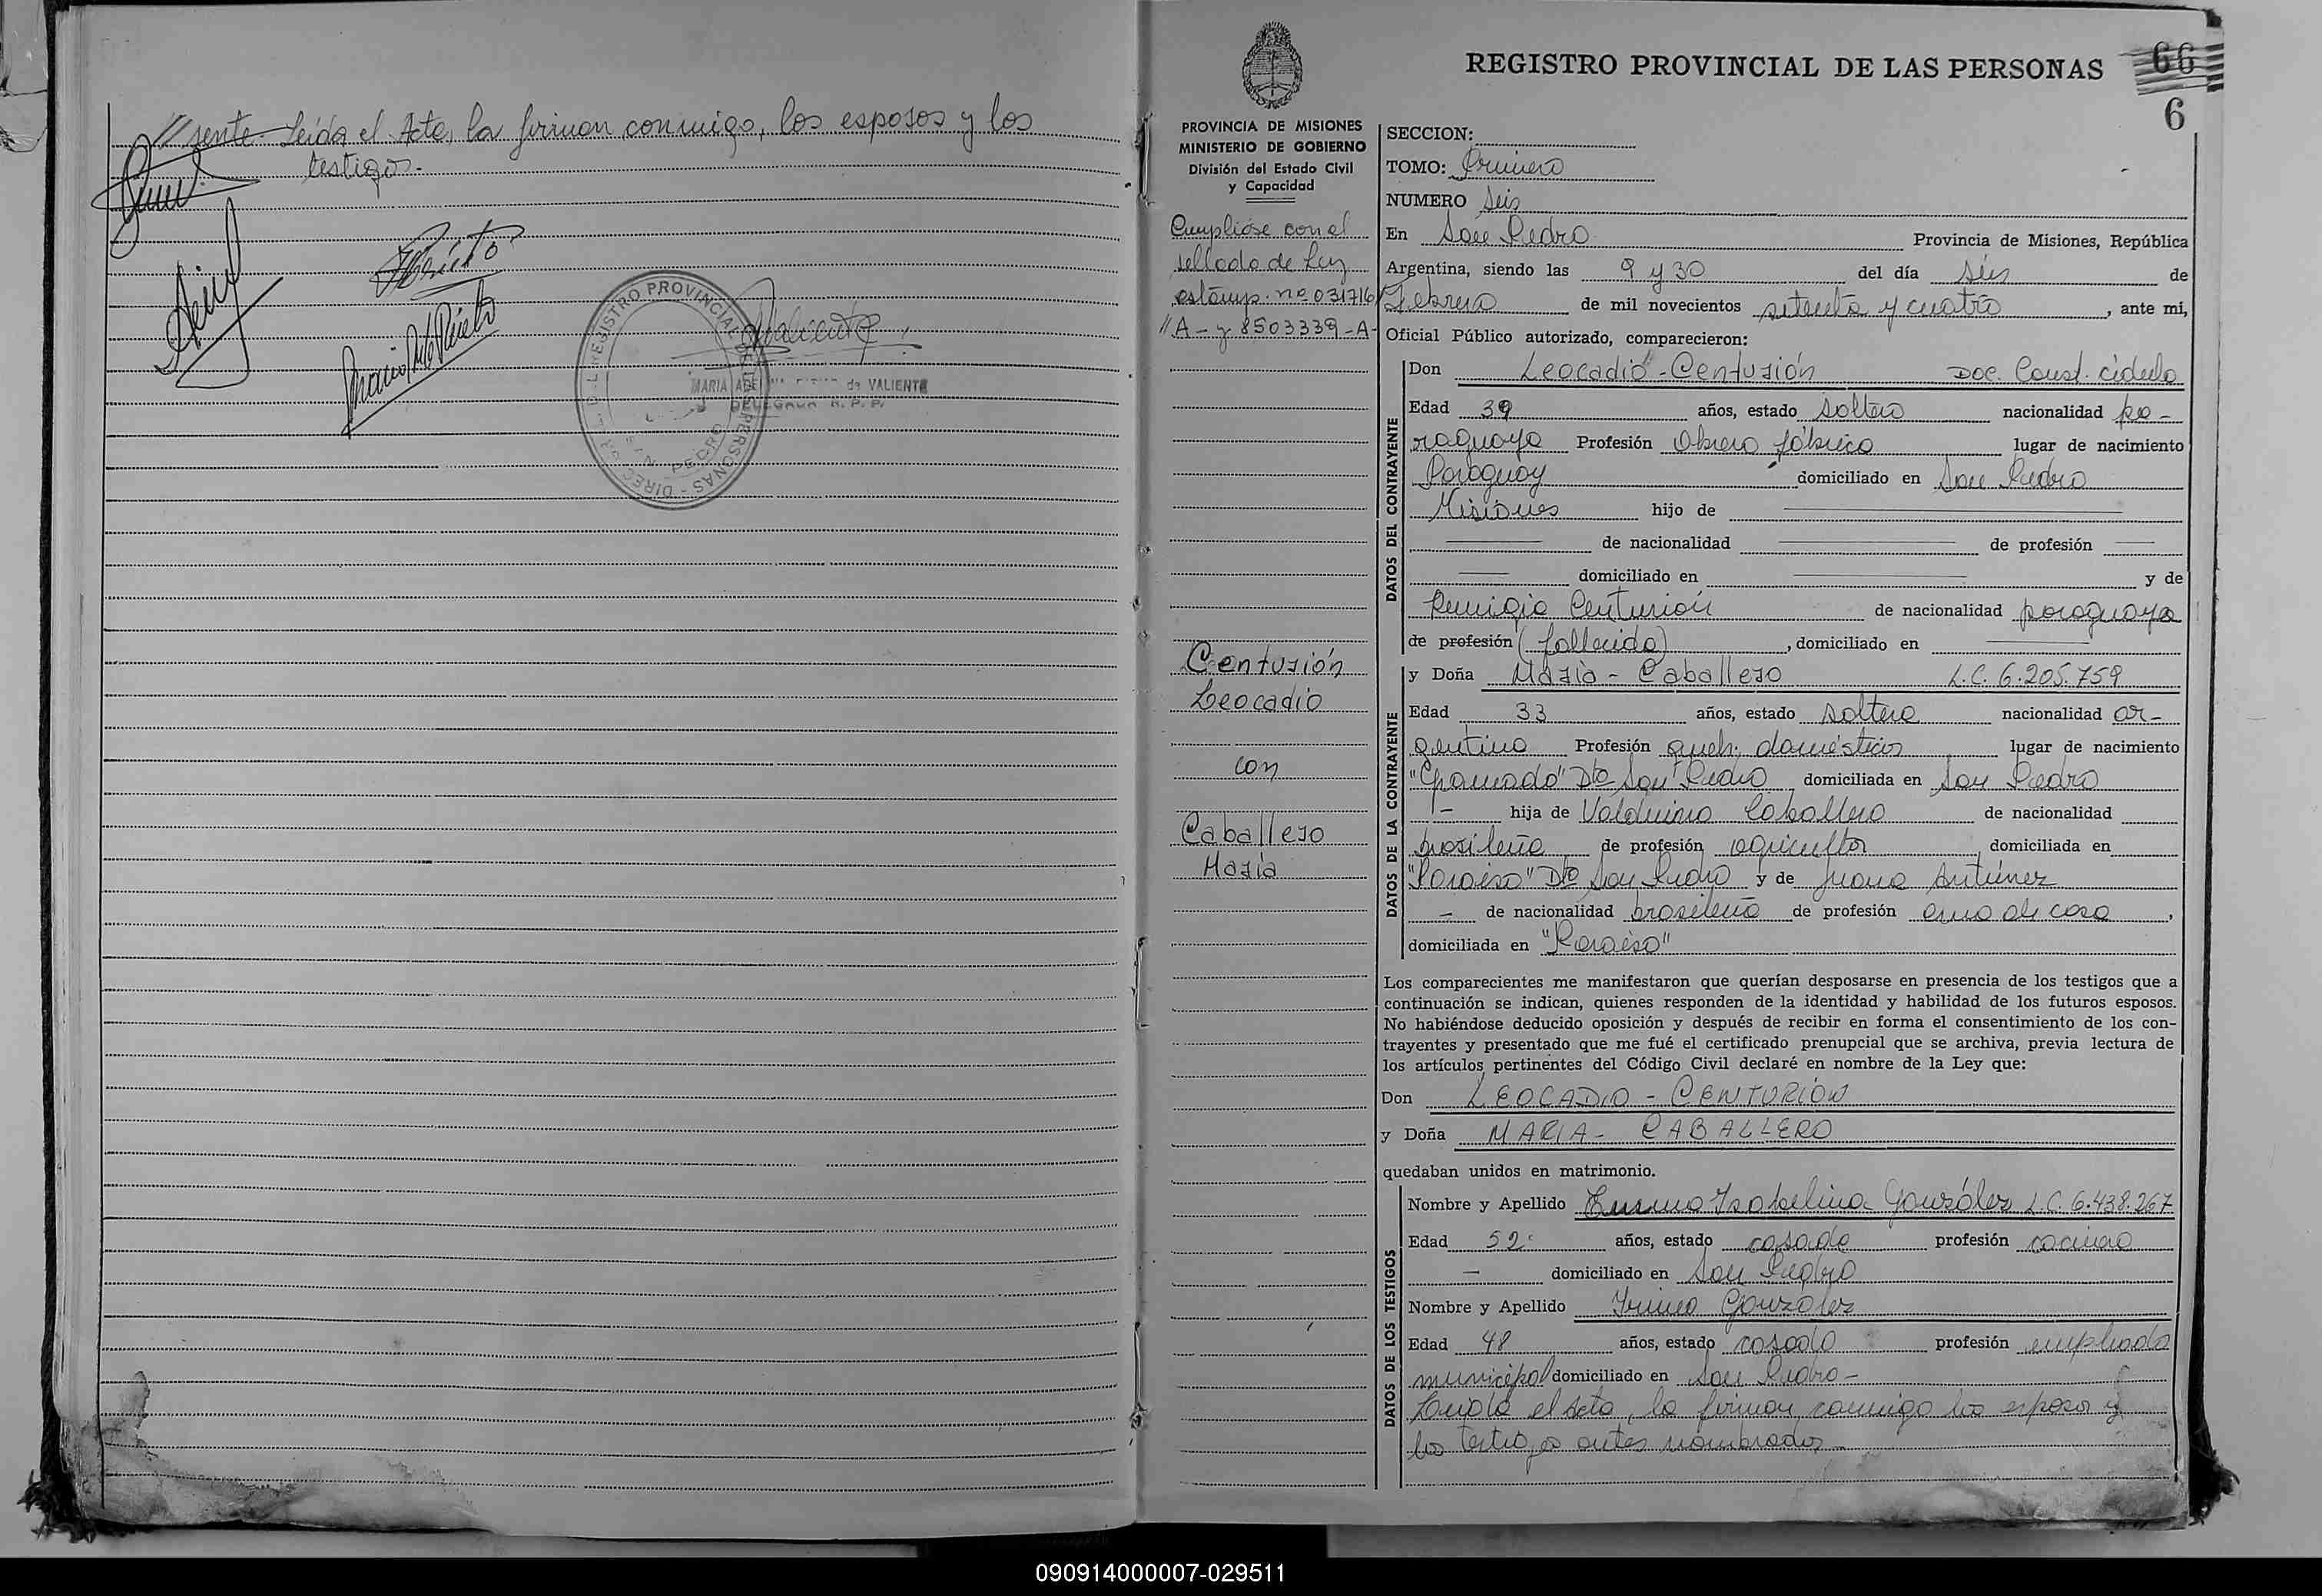 //sente. Leída el Acta, la firman conmigo, los esposos y los
testigos.-
REGISTRO PROVINCIAL DE LAS PERSONAS
MARIA de VALIENTE
DELEGADA R. P. P.
SAN PEDRO
REGISTRO PROVINCIAL DE LAS PERSONAS
66
6
PROVINCIA DE MISIONES
MINISTERIO DE GOBIERNO
División del Estado Civil
y Capacidad
Cumplióse con el
sellado de Ley
estamp. nº 031716
//A- y 8503339-A-
Centurión
Leocadio
con
Caballero
María
SECCION:
TOMO: Primero
NUMERO Seis
En San Pedro Provincia de Misiones, República
Argentina, siendo las 9 y 30 del día seis de
Febrero de mil novecientos setenta y cuatro, ante mi,
Oficial Público autorizado, comparecieron:
DATOS DEL CONTRAYENTE
Don Leocadio - Centurión Doc. Const. cédula
Edad 39 años, estado soltero nacionalidad pa-
raguaya Profesión Obrero fábrica lugar de nacimiento
Paraguay domiciliado en San Pedro
Misiones hijo de
de nacionalidad de profesión
domiciliado en y de
Remigia Centurión de nacionalidad paraguaya
de profesión (fallecida), domiciliado en
DATOS DE LA CONTRAYENTE
y Doña María - Caballero L.C. 6.205.759
Edad 33 años, estado soltera nacionalidad ar-
gentina Profesión queh. domésticos lugar de nacimiento
Dto San Pedro domiciliada en San Pedro
- hija de Valduino Caballero de nacionalidad
brasileña de profesión agricultor domiciliada en
"Paraíso" Dto San Pedro y de Juana Antúnez
- de nacionalidad brasileña de profesión ama de casa,
domiciliada en "Paraíso"
Los comparecientes me manifestaron que querían desposarse en presencia de los testigos que a
continuación se indican, quienes responden de la identidad y habilidad de los futuros esposos.
No habiéndose deducido oposición y después de recibir en forma el consentimiento de los con-
trayentes y presentado que me fué el certificado prenupcial que se archiva, previa lectura de
los artículos pertinentes del Código Civil declaré en nombre de la Ley que:
Don LEOCADIO - CENTURIÓN
y Doña MARIA - CABALLERO
quedaban unidos en matrimonio.
DATOS DE LOS TESTIGOS
Nombre y Apellido Isabelina González L.C. 6.438.267
Edad 52 años, estado casada profesión cocinera
- domiciliado en San Pedro
Nombre y Apellido Irineo González
Edad 48 años, estado casado profesión empleado
municipal domiciliado en San Pedro-
Leída el Acta, la firman conmigo los esposos y
los testigos antes nombrados-
090914000007-029511